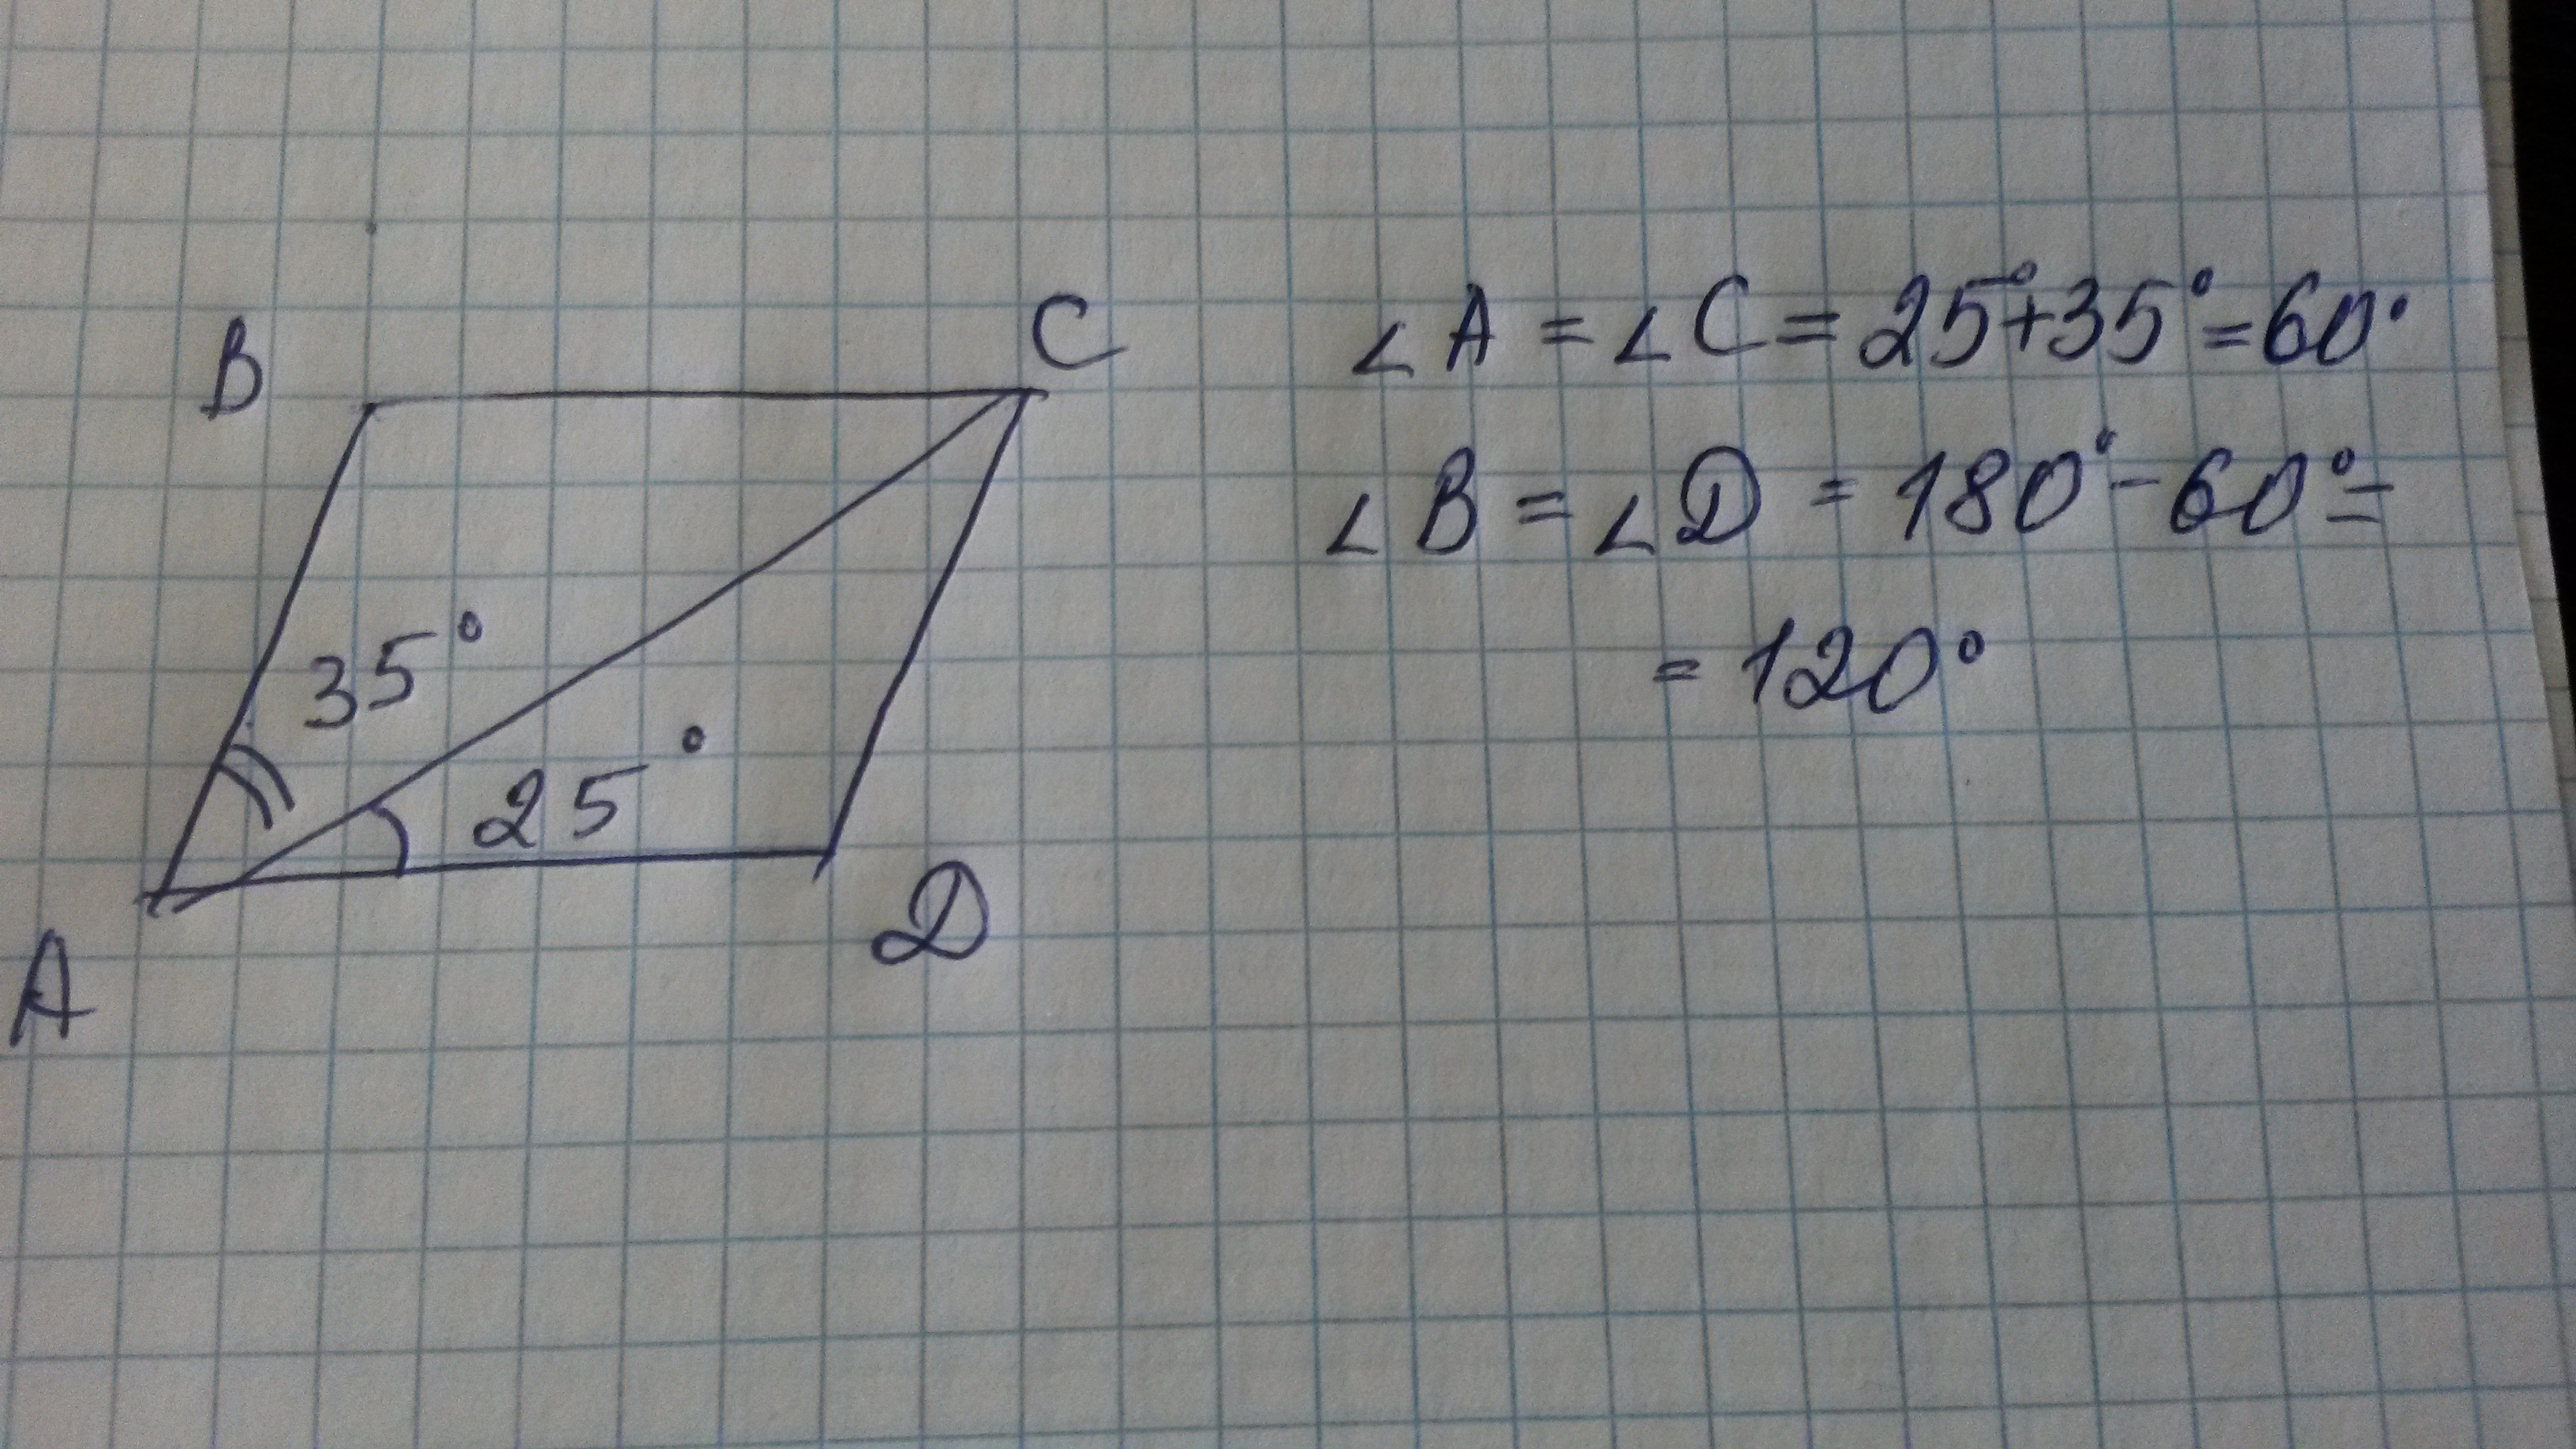 B
C
35°
25°
A
D
∠A = ∠C = 25°+35°=60°
∠B = ∠D = 180°-60°=
= 120°